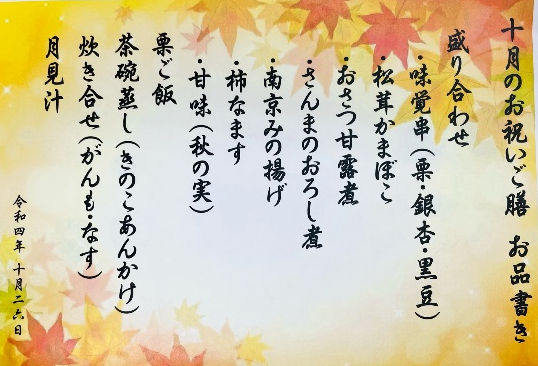 十月のお祝いご膳 お品書き
盛り合わせ
・味覚串(栗・銀杏・黒豆)
・松茸かまぼこ
・おさつ甘露煮
・さんまのおろし煮
・南京みの揚げ
・柿なます
・甘味(秋の実)
栗ご飯
茶碗蒸し(きのこあんかけ)
炊き合せ(がんも・なす)
月見汁
令和四年 十月二六日